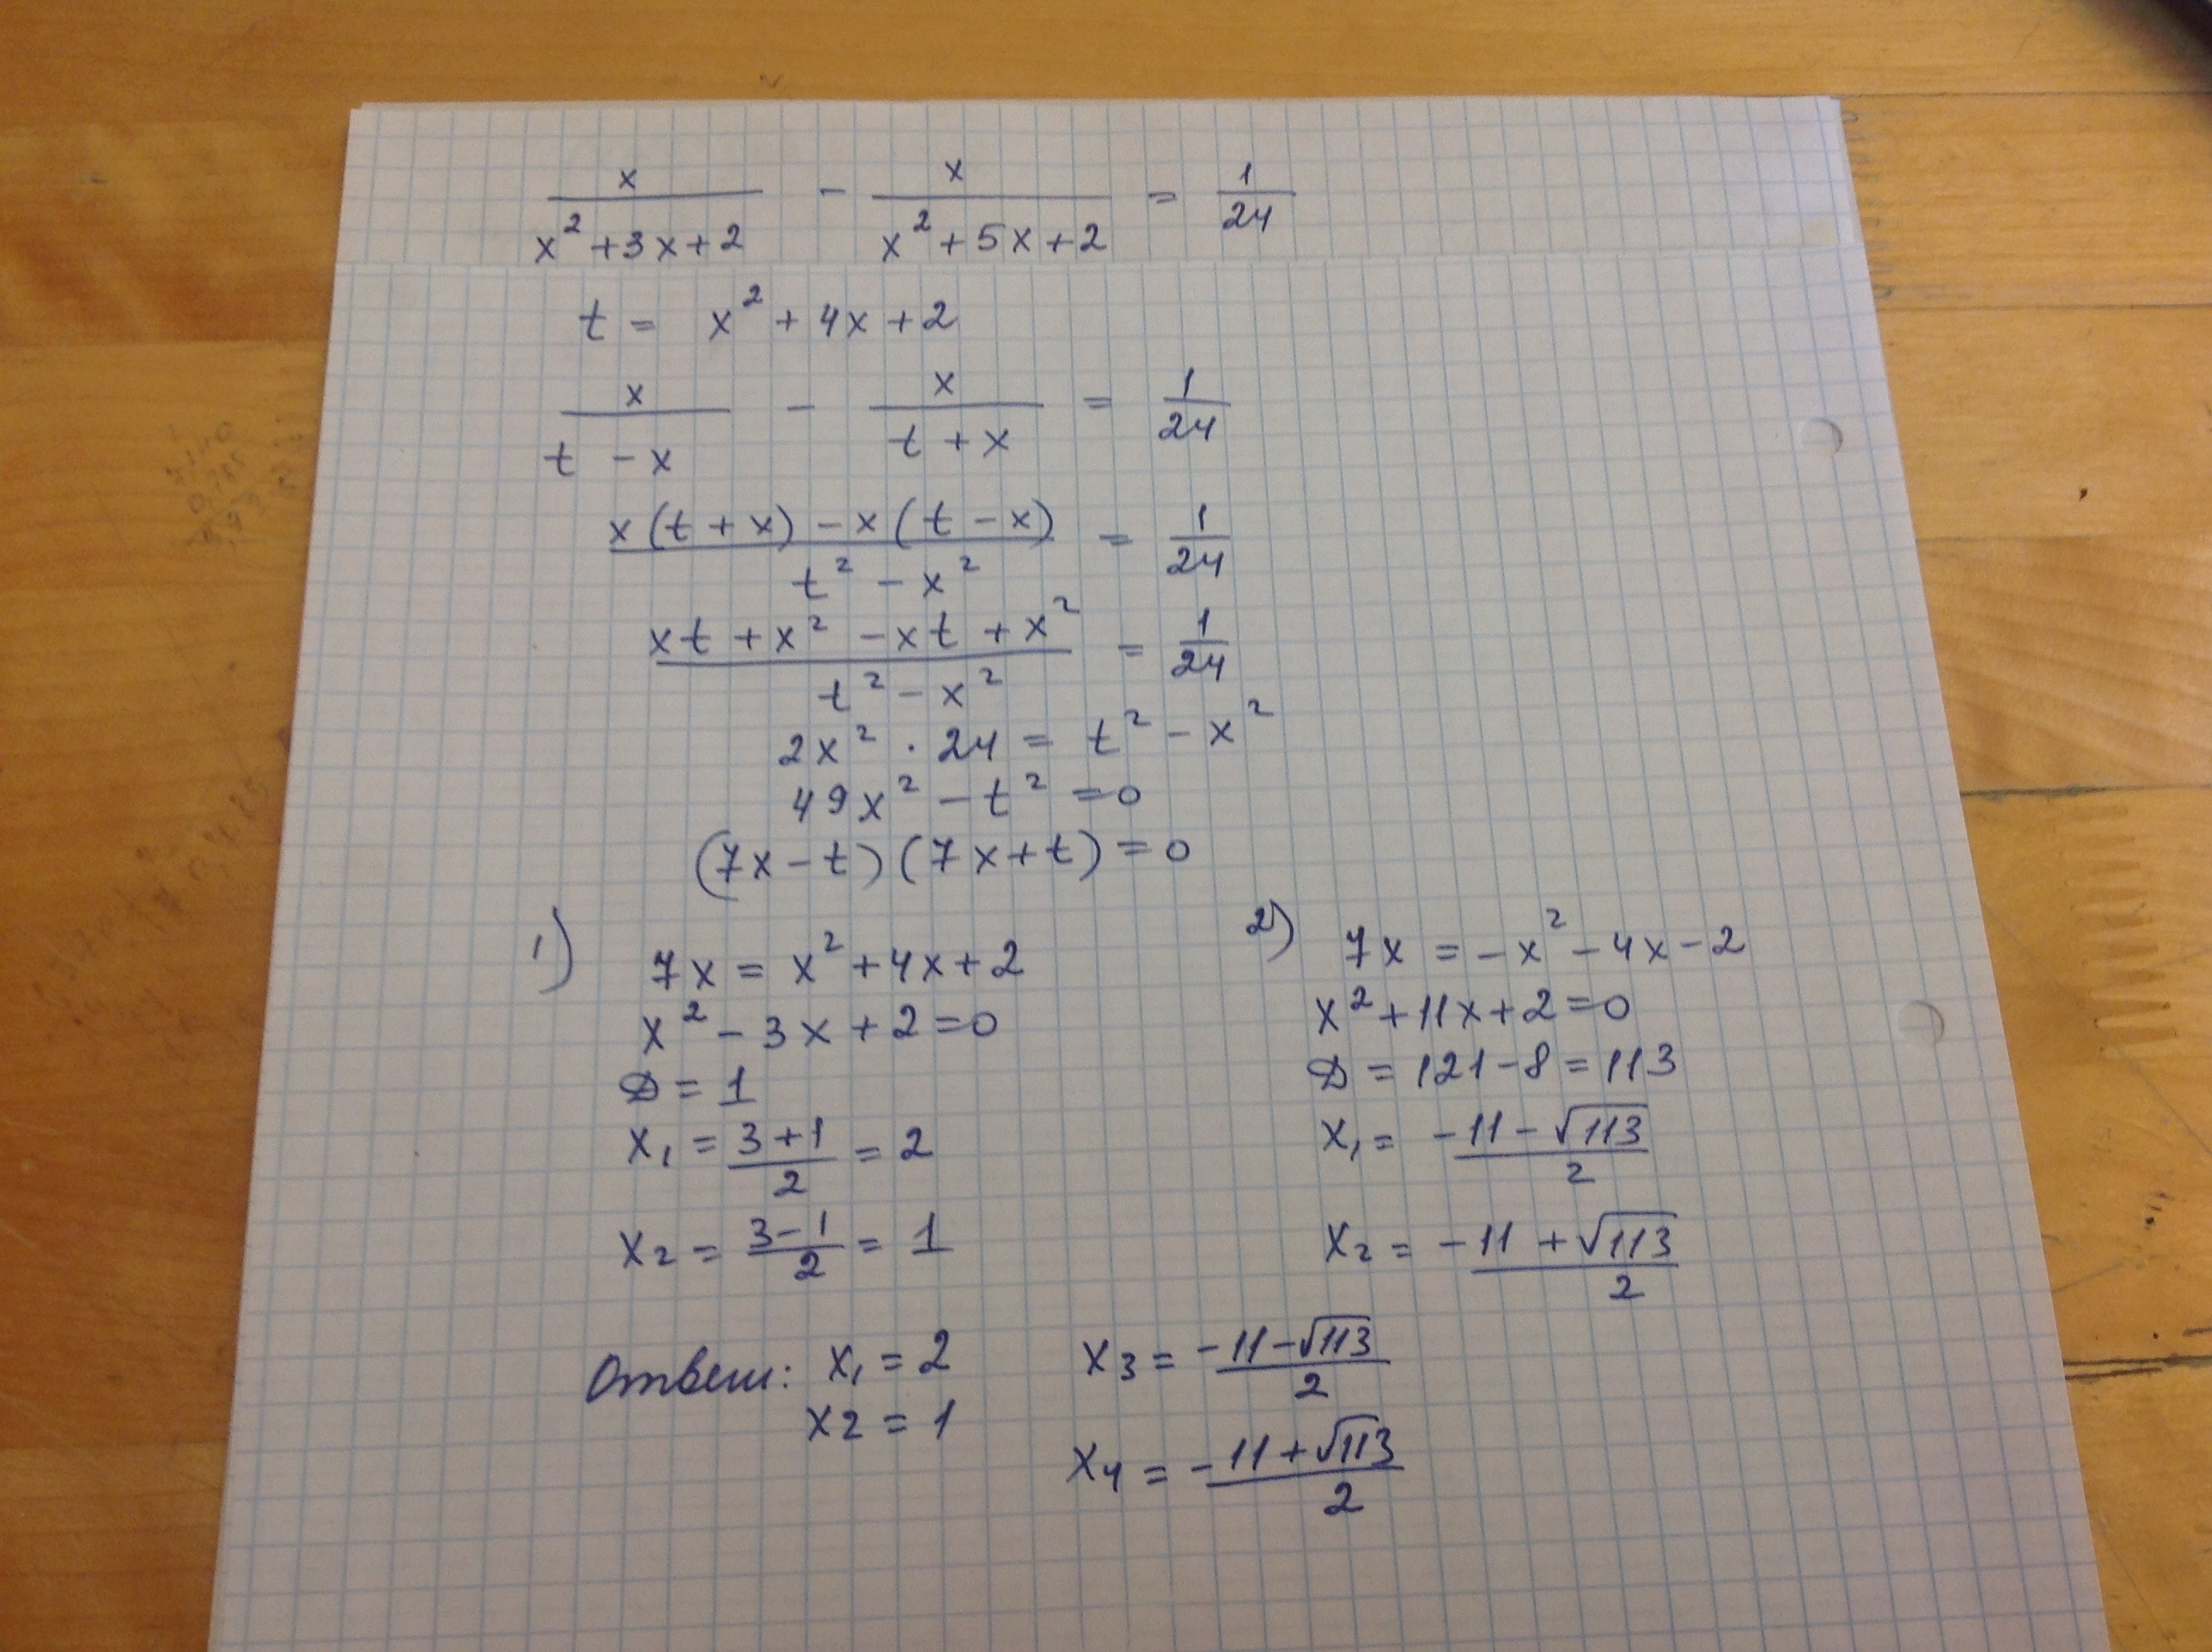 x/(x² + 3x + 2) - x/(x² + 5x + 2) = 1/24
t = x² + 4x + 2
x/(t - x) - x/(t + x) = 1/24
(x(t + x) - x(t - x))/(t² - x²) = 1/24
(xt + x² - xt + x²)/(t² - x²) = 1/24
2x² · 24 = t² - x²
49x² - t² = 0
(7x - t)(7x + t) = 0
1) 7x = x² + 4x + 2
x² - 3x + 2 = 0
D = 1
x₁ = (3 + 1)/2 = 2
x₂ = (3 - 1)/2 = 1
2) 7x = -x² - 4x - 2
x² + 11x + 2 = 0
D = 121 - 8 = 113
x₁ = (-11 - √113)/2
x₂ = (-11 + √113)/2
Ответ: x₁ = 2
x2 = 1
x₃ = (-11 - √113)/2
x₄ = (-11 + √113)/2